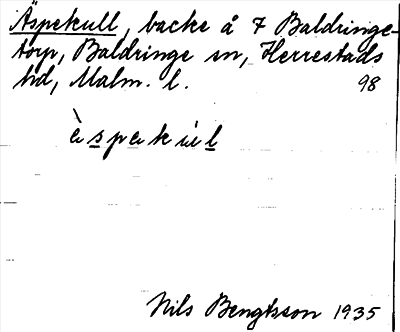 Äspekull, backe å 7 Baldringe-
torp, Baldringe sn, Herrestads
hd, Malm. l. 98
Nils Bengtsson 1935